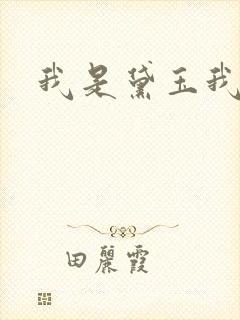 我是黛玉我
田麗霞